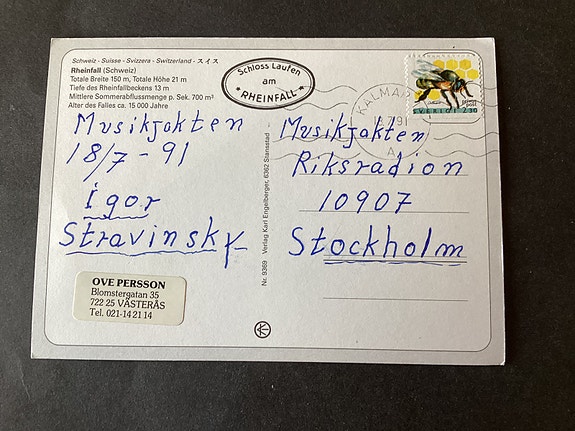 Schweiz · Suisse · Svizzera · Switzerland · スイス
Rheinfall (Schweiz)
Totale Breite 150 m, Totale Höhe 21 m
Tiefe des Rheinfallbeckens 13 m
Mittlere Sommerabflussmenge p. Sek. 700 m³
Alter des Falles ca. 15 000 Jahre
Schloss Laufen
am
*RHEINFALL*
KALMAR
18.7.91
A
SVERIGE 2.30
Musikjakten
18/7 - 91
Igor
Stravinsky
OVE PERSSON
Blomstergatan 35
722 25 VÄSTERÅS
Tel. 021-14 21 14
Nr. 9369 Verlag Karl Engelberger, 6362 Stansstad
Musikjakten
Riksradion
10907
Stockholm